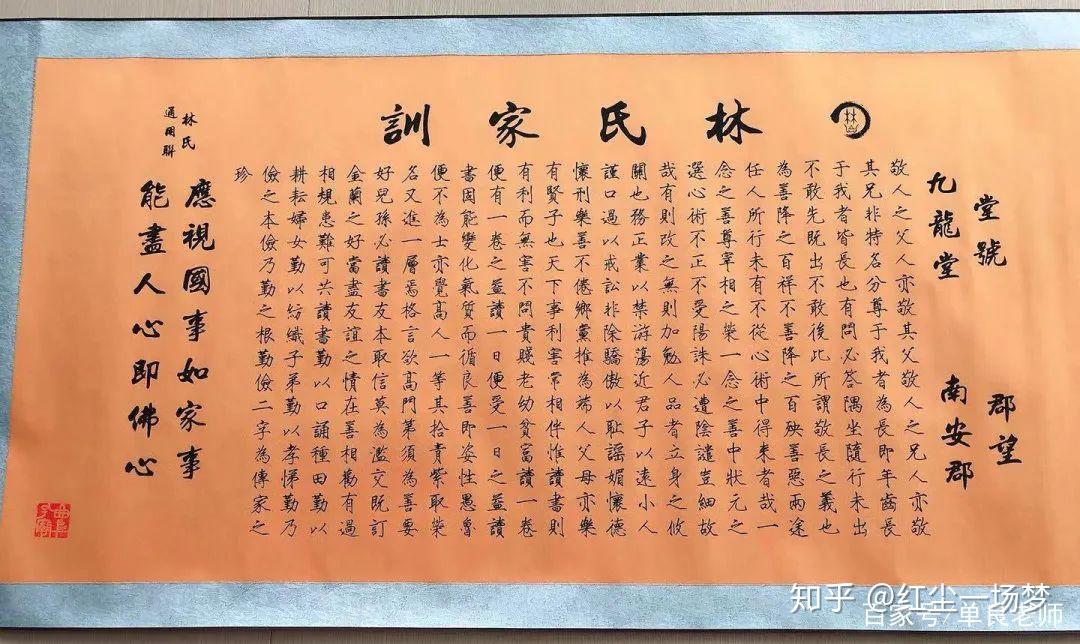 林氏家訓
林
堂號 郡望
九龍堂 南安郡
敬人之父人亦敬其父敬人之兄人亦敬
其兄非特名分尊于我者為長即年齒長
于我者皆長也有問必答隅坐隨行未出
不敢先既出不敢後此所謂敬長之義也
為善降之百祥不善降之百殃善惡兩途
任人所行未有不從心術中得來者哉一
念之善尊宰相之榮一念之善中狀元之
選心術不正不受陽誅必遭陰譴豈細故
哉有則改之無則加勉人品者立身之攸
關也務正業以禁游蕩近君子以遠小人
謹口過以戒訟非除驕傲以恥謠媚懷德
懷刑樂善不倦鄉黨推為端人父母亦樂
有賢子也天下事利害常相伴惟讀書則
有利而無害不問貴賤老幼貧富讀一卷
便有一卷之益讀一日便受一日之益讀
書因能變化氣質而循良善即姿性愚魯
便不為士亦覺高人一等其拾青紫取榮
名又進一層焉格言欲高門第須為善要
好兒孫必讀書友本取信莫為濫交既訂
金蘭之好當盡友誼之情在善相勸有過
相規患難可共讀書勤以口誦種田勤以
耕耘婦女勤以紡織子弟勤以孝悌勤乃
儉之本儉乃勤之根勤儉二字為傳家之
珍
林氏
通用聯
應視國事如家事
能盡人心即佛心
知乎 @红尘一场梦
百家号/单良老师